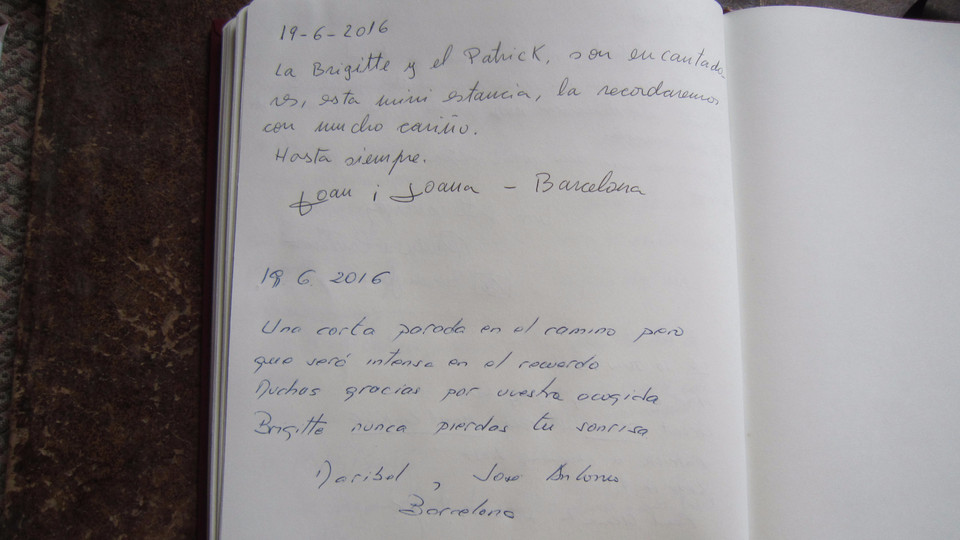 19-6-2016
La Brigitte y el Patrick, son encantado-
res, esta mini estancia, la recordaremos
con mucho cariño.
Hasta siempre.
Joan i Joana - Barcelona
19 6 2016
Una corta parada en el camino pero
que será intensa en el recuerdo
Muchas gracias por vuestra acogida
Brigitte nunca pierdas tu sonrisa
Maribel, Jose Antonio
Barcelona